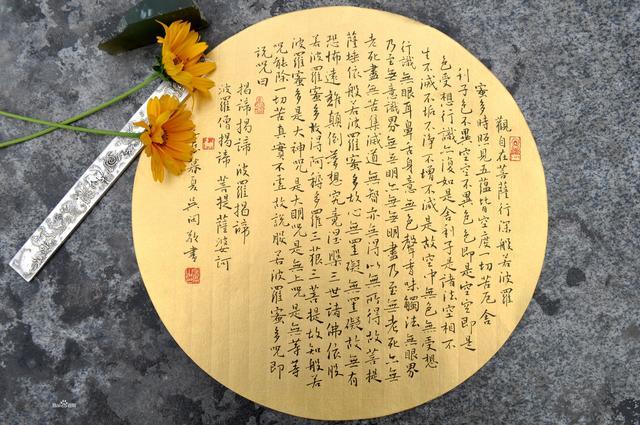 觀自在菩薩行深般若波羅
蜜多時照見五蘊皆空度一切苦厄舍
利子色不異空空不異色色即是空空即是
色受想行識亦復如是舍利子是諸法空相不
生不滅不垢不淨不增不減是故空中無色無受想
行識無眼耳鼻舌身意無色聲香味觸法無眼界
乃至無意識界無無明亦無無明盡乃至無老死亦無
老死盡無苦集滅道無智亦無得以無所得故菩提
薩埵依般若波羅蜜多故心無罣礙無罣礙故無有
恐怖遠離顛倒夢想究竟涅槃三世諸佛依般
若波羅蜜多故得阿耨多羅三藐三菩提故知般若
波羅蜜多是大神咒是大明咒是無上咒是無等等
咒能除一切苦真實不虛故說般若波羅蜜多咒即
說咒曰
揭諦揭諦 波羅揭諦
波羅僧揭諦 菩提薩婆訶
書
Baidu百科